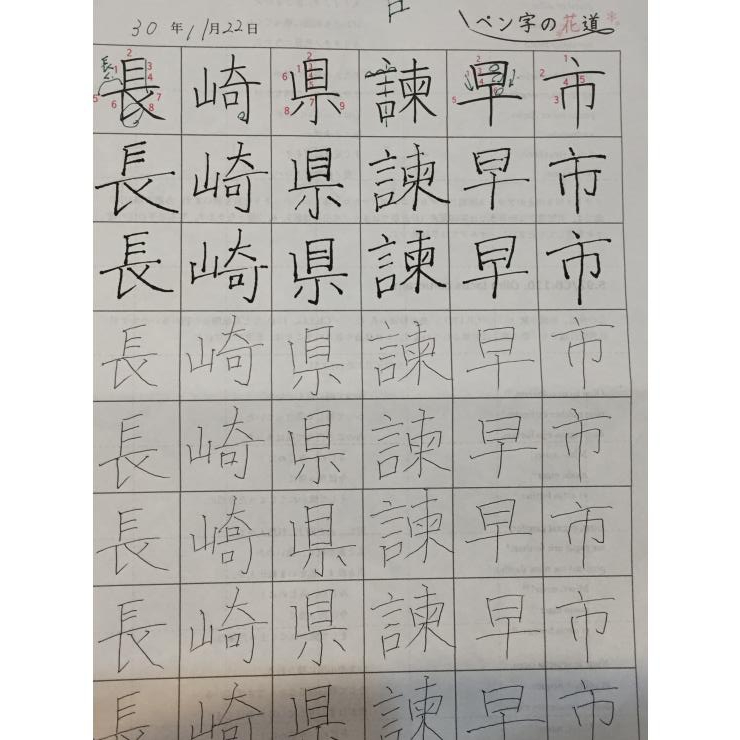 30年11月22日 ペン字の花道
長崎県諫早市
長崎県諫早市
長崎県諫早市
長崎県諫早市
長崎県諫早市
長崎県諫早市
長崎県諫早市
長崎県諫早市